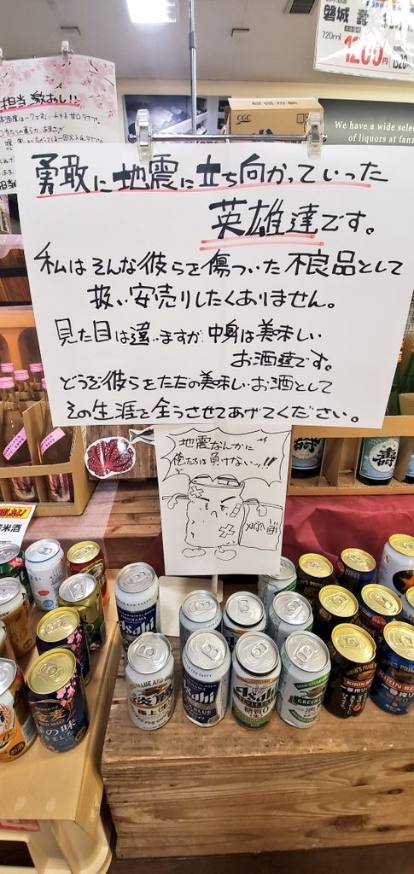 磐城 壽
720ml
1200円
担当 激おし!!
CGC
We have a wide selec
of liquors at fanz
勇敢に地震に立ち向かっていった
英雄達です。
私はそんな彼らを傷ついた不良品として
扱い安売りしたくありません。
見た目は違いますが中身は美味しい
お酒達です。
どうぞ彼らをただの美味しいお酒として
その生涯を全うさせてあげてください。
地震なんかに
俺たちは負けないっ!!
米酒
壽
Asahi
Asahi
Asahi
GREEN
KIRIN
の味